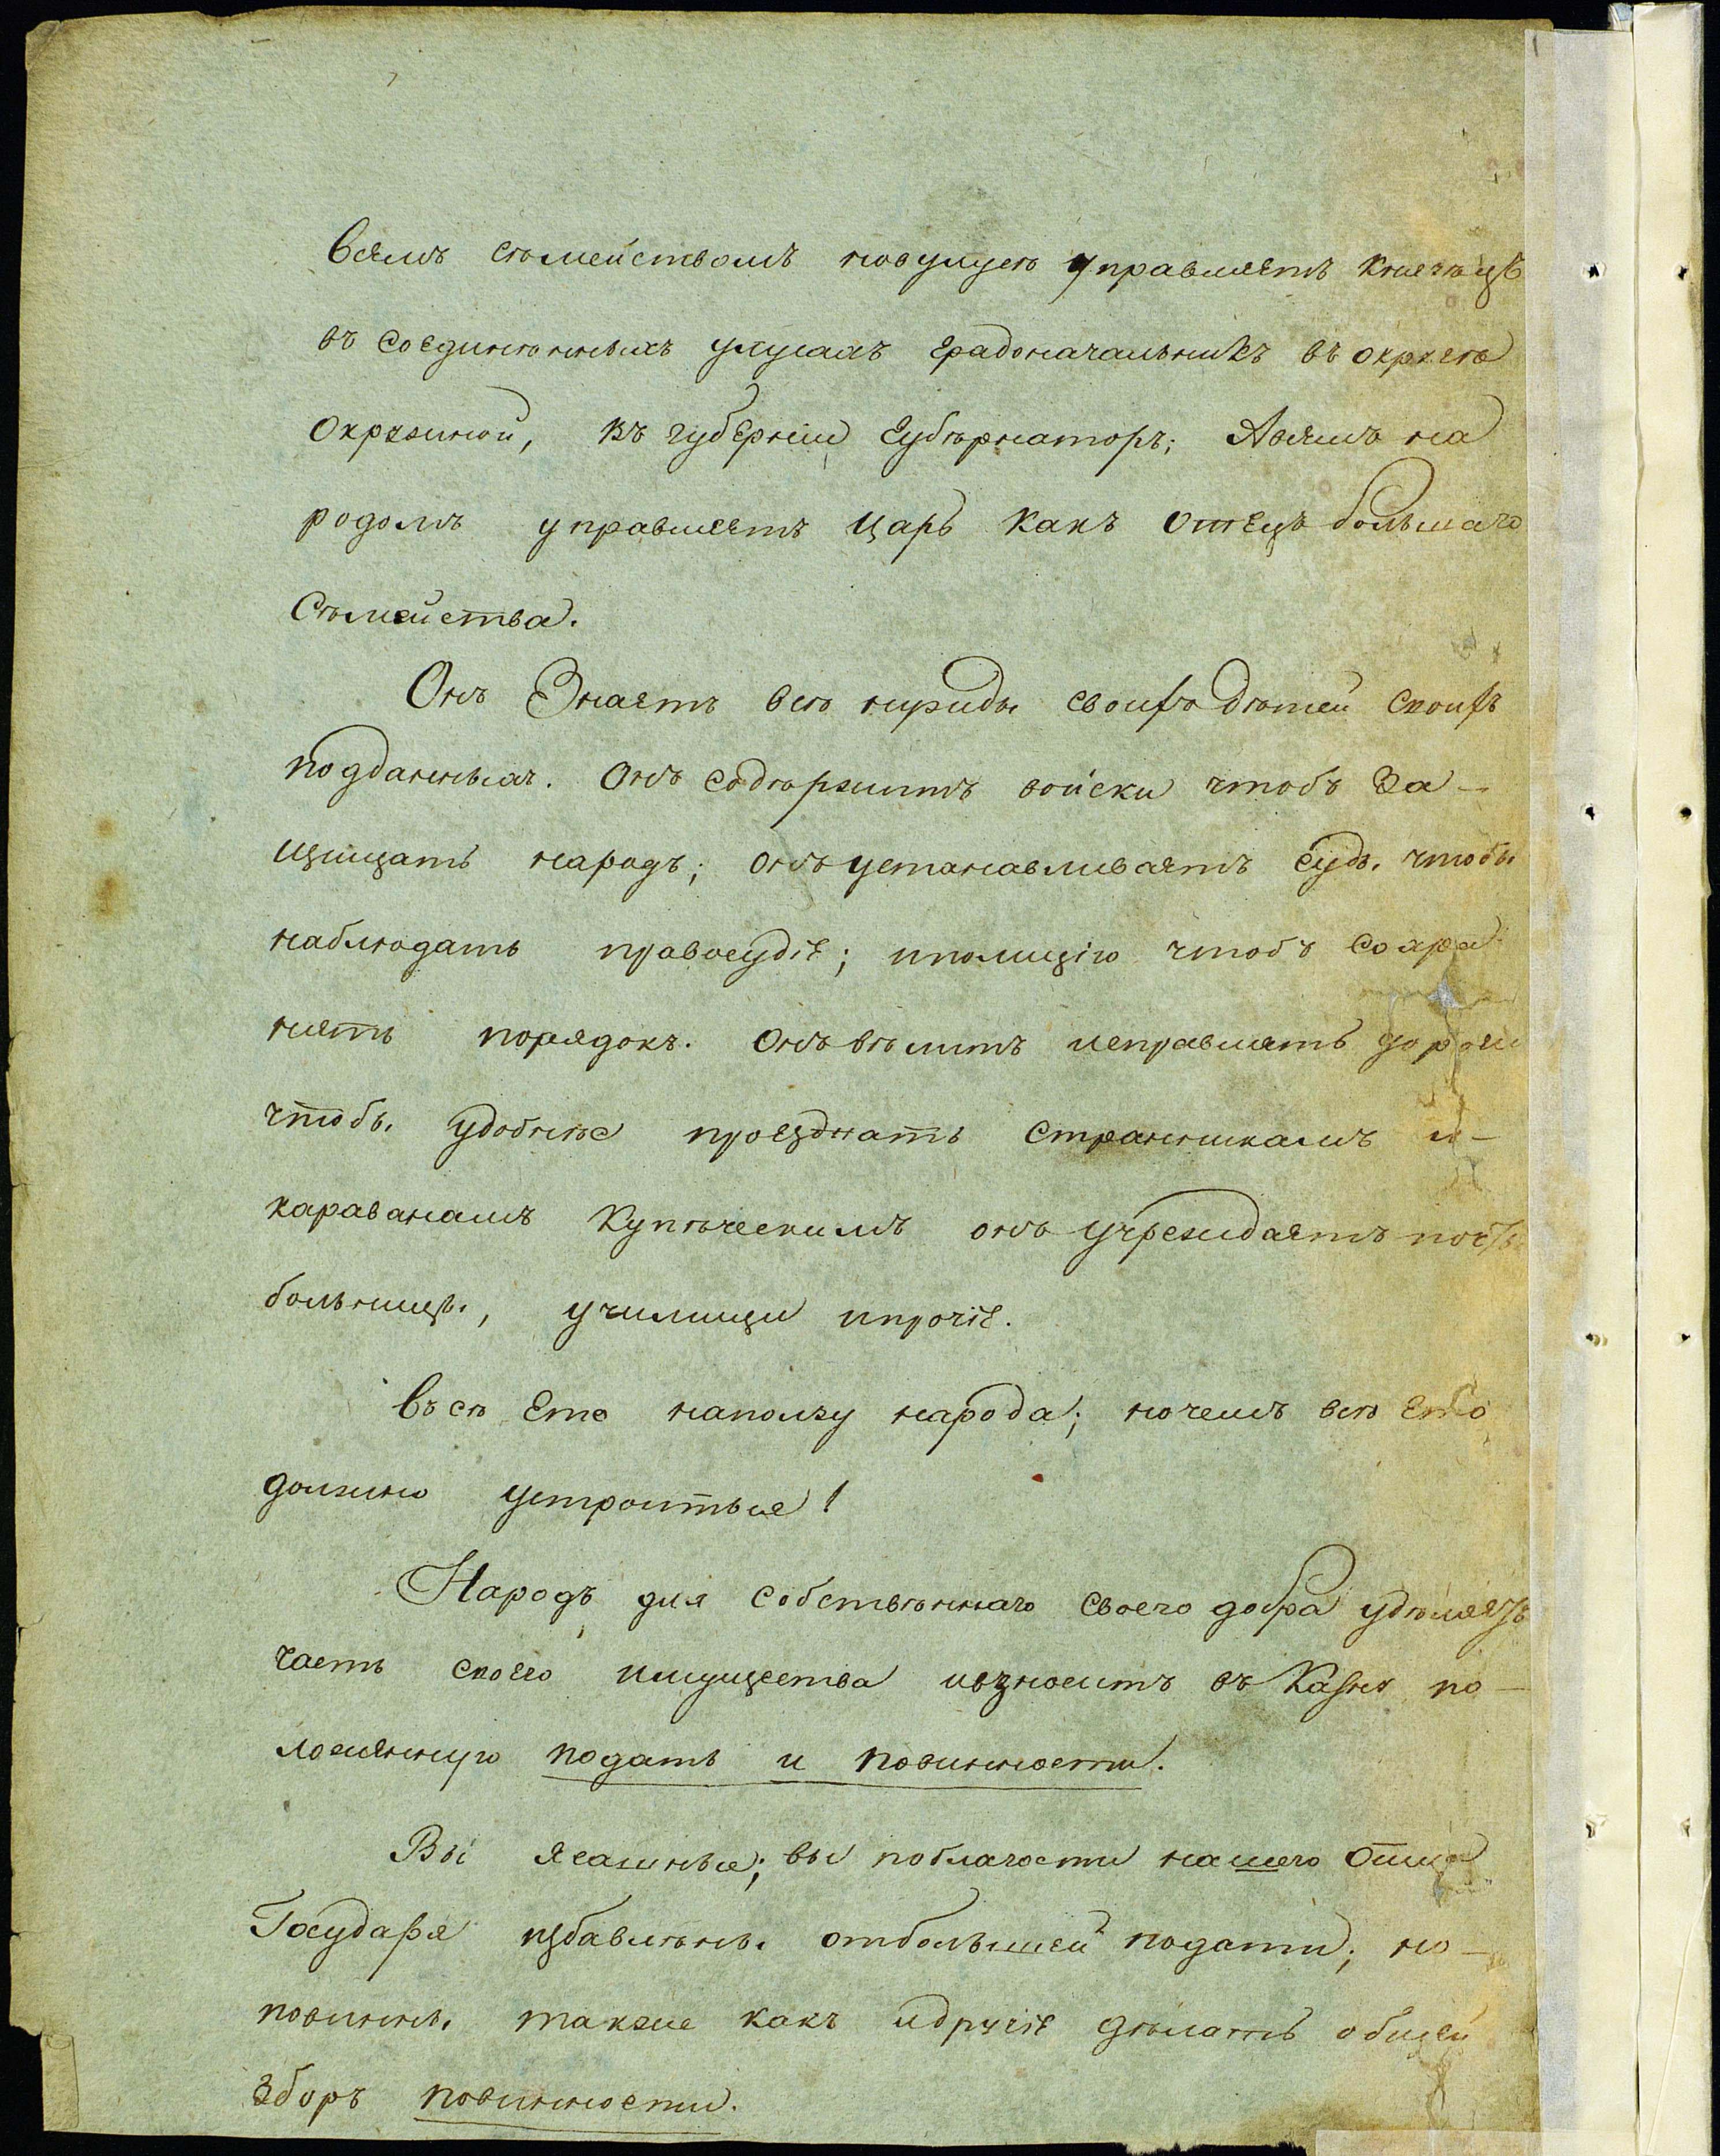 Всямъ сѣмействомъ поулусю управляятъ князѣцъ
въ соединѣнныхъ улусахъ градоначальникъ въ округѣ
окружной, въ губерніи губѣрнаторъ; Авсямъ на
родомъ управляятъ царь какъ отецъ большаго
Сѣмейства.
Онъ Знаятъ всѣ нужды своихъ дѣтей своихъ
подданныхъ. Онъ содѣржитъ войски чтобъ За-
щищать народъ; онъ устанавливаятъ суды чтобы
наблюдать правосудіе; иполицію чтобъ сохра
нять порядокъ. Онъ вѣлитъ исправлять дороги
чтобы удобнѣе проезднать странникамъ и-
караванамъ Купѣческимъ онъ учреждаятъ почты
больницы, училищи ипрочіе.
Въсѣ Ето напользу народа; ночемъ всѣ Ето
должно устроиться!
Народъ для собствѣннаго своего добра удѣляятъ
часть своего имущества ивзноситъ въ Казну по-
ложянную подать и повинности.
Вы ясашные; вы поблагости нашего Отца
Государя избавлѣны отбольшей подати; но-
повинны также какъ идругіе дѣлать общей
зборъ повинности.